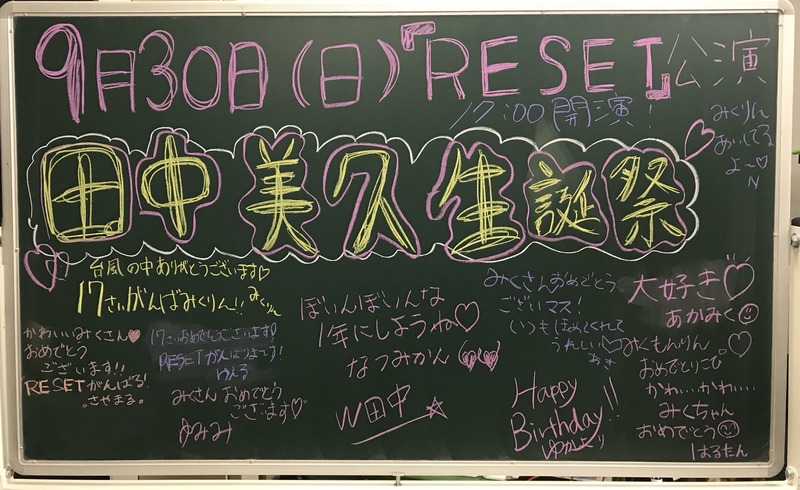 9月30日(日)『RESET』公演
17:00 開演!
みくりん
あいしてる
よ〜♡
N
田中美久生誕祭
台風の中ありがとうございます♡
17さいがんばみくりん!!
みくりん
かわいいみくさん♡
おめでとう
ございます!!
RESETがんばる!
さやまる。
17さいおめでとうございます!
RESETがんばりまてす!
みくさん おめでとう
ございます♡
ゆみみ
ぼいんぼいんな
1年にしようね♡
なつみかん
W田中☆
みくさんおめでとう
ございマス!
いつもほめてくれて
うれしい♡
あき
Happy
Birthday!!
ゆかより
大好き♡
あかみく
みくもんりん
おめでとりこぴ
かわ…かわ…
みくちゃん
おめでとう
はるたん